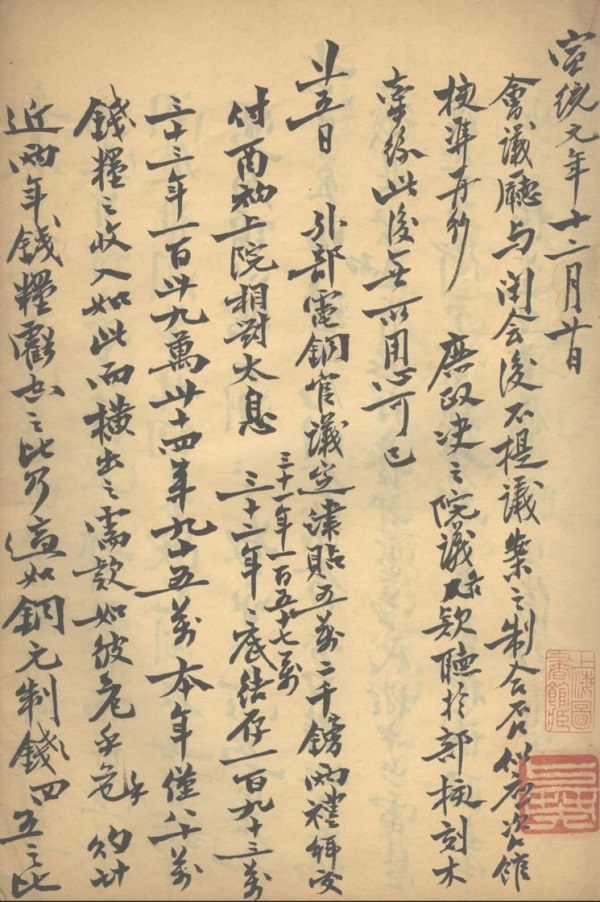 宣統元年十二月廿日
會議廳与闭会後不提議案之制合否似應咨館
核準再抄 庶政决之院議 聽於部核刻木
牽絲此後無所用心可已
廿五日 外部電銅官議定津貼五萬二千鎊兩禮拜交
付酉初上院相對太息 三十一年一百五十七萬 三十二年底结存一百九十三萬
三十三年一百卅九萬卅十四年九十五萬本年僅八十萬
錢糧之收入如此而橫出之需款如彼危乎危乎 約計
近兩年錢糧虧出之比乃適如銅元制錢四五之比
上海圖書館藏